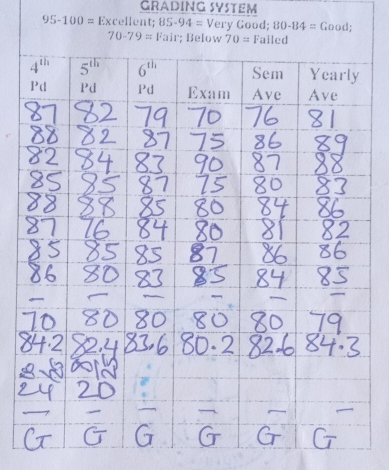 GRADING SYSTEM
95-100 = Excellent; 85-94 = Very Good; 80-84 = Good;
70-79 = Fair; Below 70 = Failed
4th Pd 5th Pd 6th Pd Exam Sem Ave Yearly Ave
87 82 79 70 76 81
88 82 87 75 86 89
82 84 83 90 87 88
85 85 87 75 80 83
88 88 85 80 84 86
87 76 84 80 81 82
85 85 85 87 86 86
86 80 83 85 84 85
— — — — — —
70 80 80 80 80 79
84.2 82.4 83.6 80.2 82.6 84.3
24 20
— — — — — —
G G G G G G